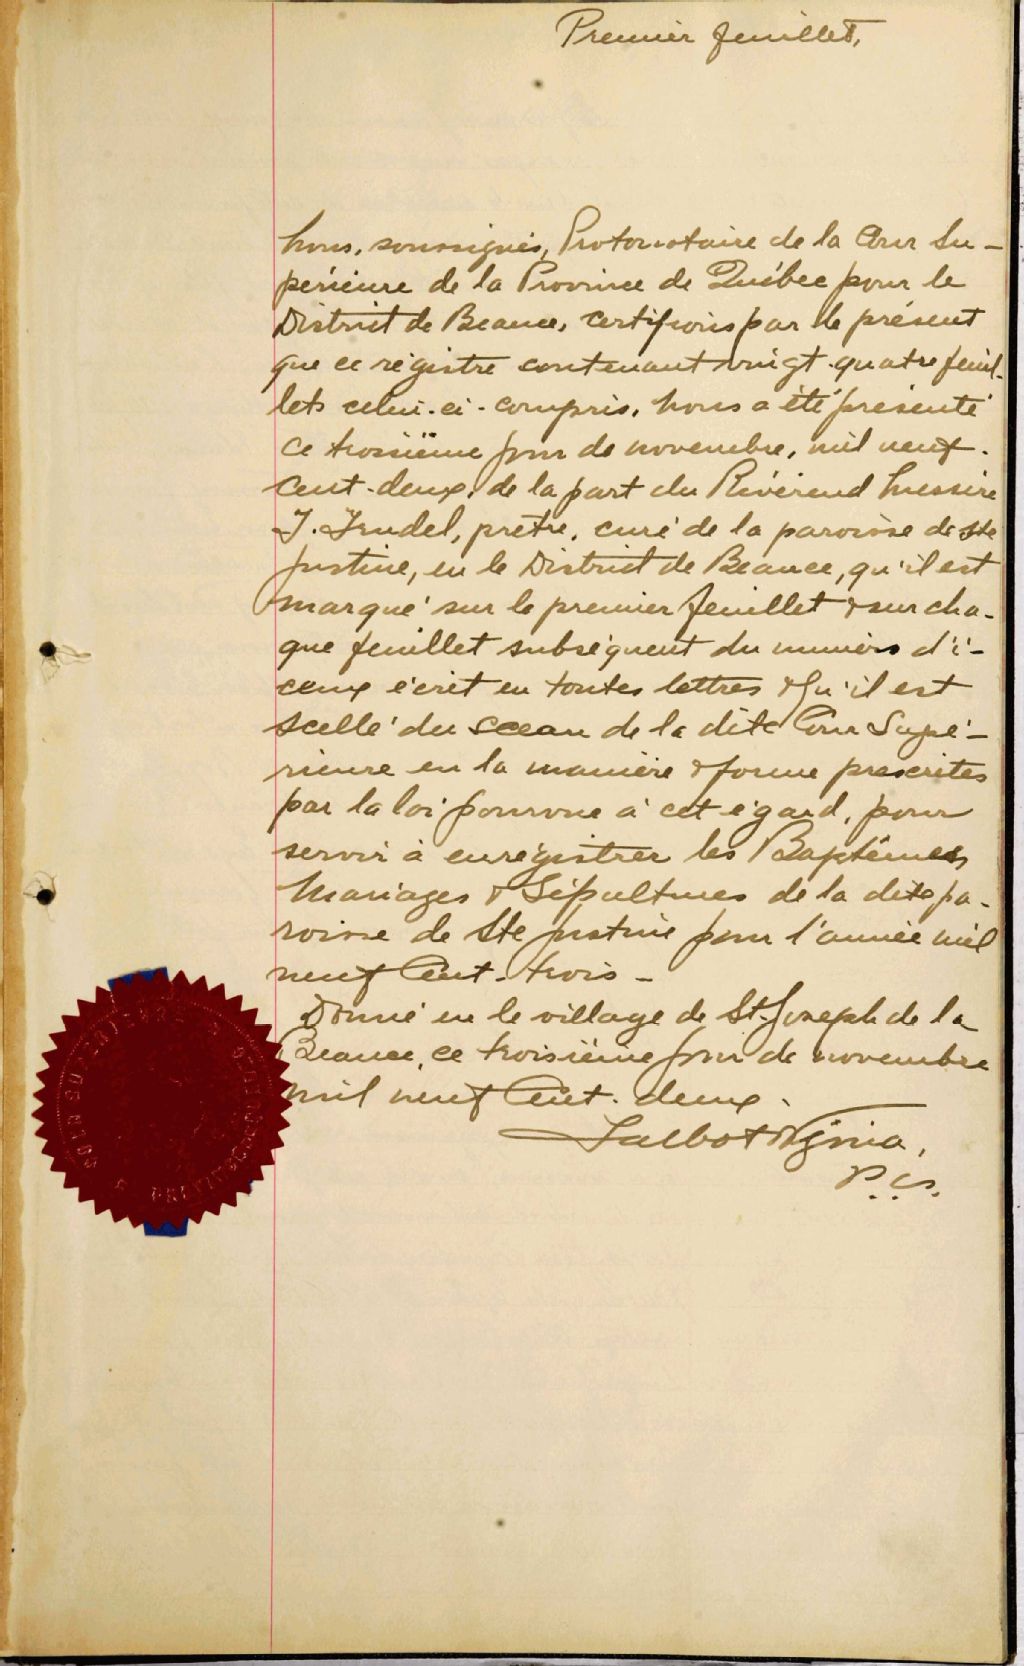 Premier feuillet,
Nous, soussignés, Protonotaire de la Cour Su-
périeure de la Province de Québec pour le
District de Beauce, certifions par le présent
que ce régistre contenant vingt-quatre feuil-
lets celui-ci-compris, nous a été présenté
ce troisième jour de novembre, mil neuf-
cent-deux, de la part du Révérend Messire
J. Trudel, prêtre, curé de la paroisse de Ste
Justine, en le District de Beauce, qu'il est
marqué sur le premier feuillet & sur cha-
que feuillet subséquent du numéro d'i-
ceux écrit en toutes lettres & qu'il est
scellé du sceau de la dite Cour Supé-
rieure en la manière & forme prescrites
par la loi pourvue à cet égard, pour
servir à enrégistrer les Baptêmes
Mariages & Sépultures de la dite pa-
roisse de Ste Justine pour l'année mil
neuf Cent-trois -
Donné en le village de St. Joseph de la
Beauce, ce troisième jour de novembre
mil neuf Cent-deux.
Talbot &
P.C.S.